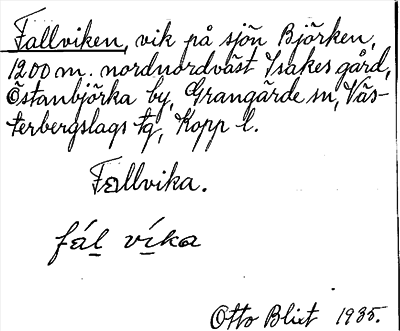 Fallviken, vik på sjön Björken,
1200 m. nordnordväst Isakes gård,
Östanbjörka by, Grangärde sn, Väs-
terbergslags tg, Kopp. l.
Fallvika.
fál víka
Otto Blixt 1935.